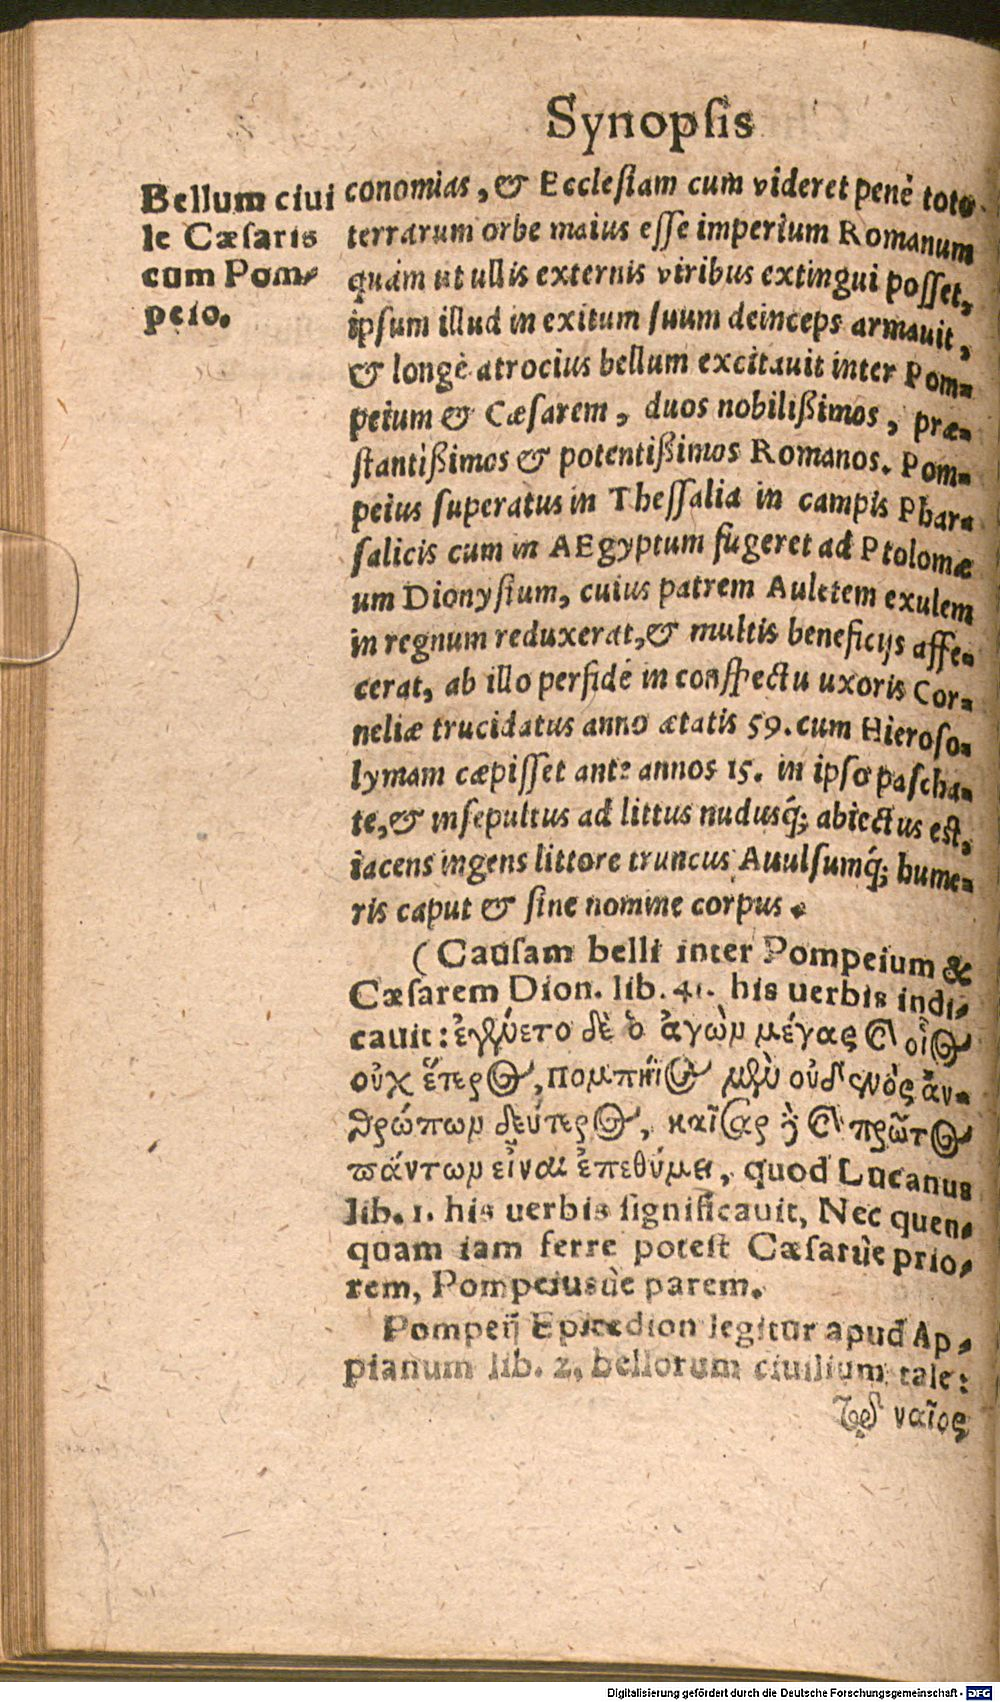 Synopsis
Bellum ciui
le Cæsaris
cum Pom-
peio.
conomias, & Ecclesiam cum videret penè toto
terrarum orbe maius esse imperium Romanum
quàm ut ullis externis viribus extingui posset,
ipsum illud in exitum suum deinceps armauit,
& longè atrocius bellum excitauit inter Pom-
peium & Cæsarem, duos nobilißimos, præ-
stantißimos & potentißimos Romanos. Pom-
peius superatus in Thessalia in campis Phar-
salicis cum in AEgyptum fugeret ad Ptolomæ
um Dionysium, cuius patrem Auletem exulem
in regnum reduxerat, & multis beneficijs affe-
cerat, ab illo perfidè in conspectu uxoris Cor-
neliæ trucidatus anno ætatis 59. cum Hieroso-
lymam cæpisset ante annos 15. in ipso pascha-
te, & insepultus ad littus nudusq́; abiectus est,
iacens ingens littore truncus Auulsumq́; hume-
ris caput & sine nomine corpus.
(Causam belli inter Pompeium &
Cæsarem Dion. lib. 41. his uerbis indi-
cauit: ἐγλύετο δὲ ὁ ἀγὼν μέγας καὶ οἷος
οὐχ ἕτερος, πομπήϊος μὲν οὐδενὸς ἀν-
θρώπων δεύτερος, καῖσαρ δὲ καὶ πρῶτος
πάντων εἶναι ἐπεθύμει, quod Lucanus
lib. 1. his uerbis significauit, Nec quen-
quam iam ferre potest Cæsarùe prio-
rem, Pompeiusùe parem.
Pompeij Epicedion legitur apud Ap-
pianum lib. 2, bellorum ciuilium tale:
ναῖος
Digitalisierung gefördert durch die Deutsche Forschungsgemeinschaft - DFG